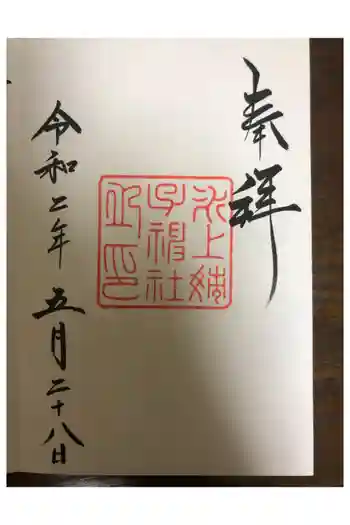 奉拝
氷上姉
子神社
之印
令和二年 五月二十八日